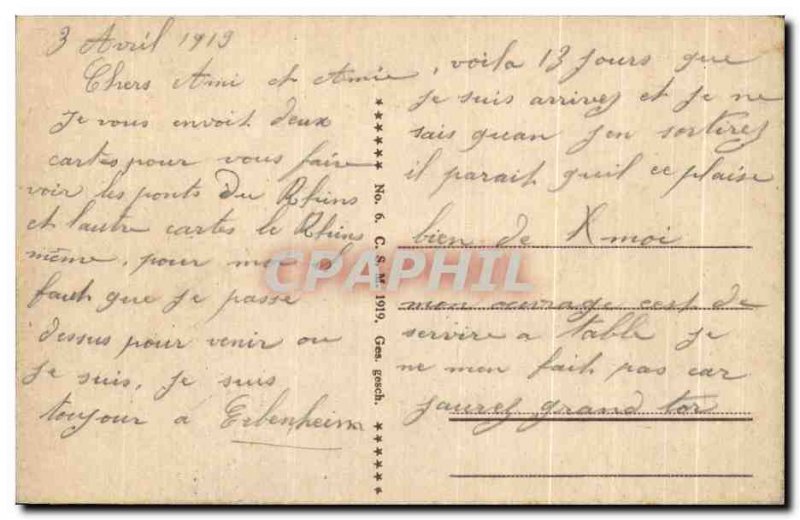 3 Avril 1919
Chers Ami et Amie, voila 13 jours que
Je vous envoit deux
cartes pour vous faire
voir les ponts du Rhins
et lautre cartes le Rhins
même, pour moi il
fauh que je passe
dessus pour venir ou
je suis, je suis
toujour a Erbenheim
je suis arrivez et je ne
sais quan jen sortirez
il parait quil ce plaise
bien de moi
mon ouvrage cest de
servire a table je
ne men fait pas car
jaurez grand tor
No. 6. C. S. M. 1919. Ges. gesch.
CPAPHIL